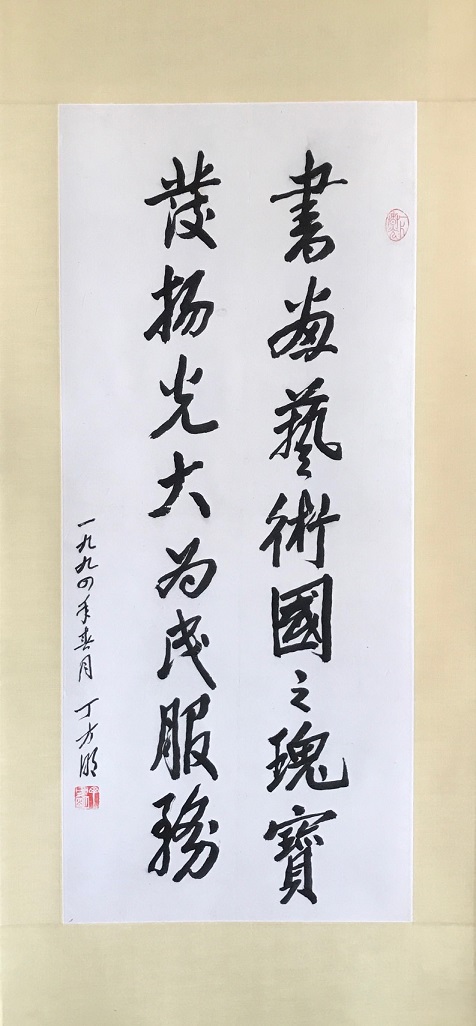 書画藝術國之瑰寶
發扬光大为民服務
一九九四年春月 丁方明